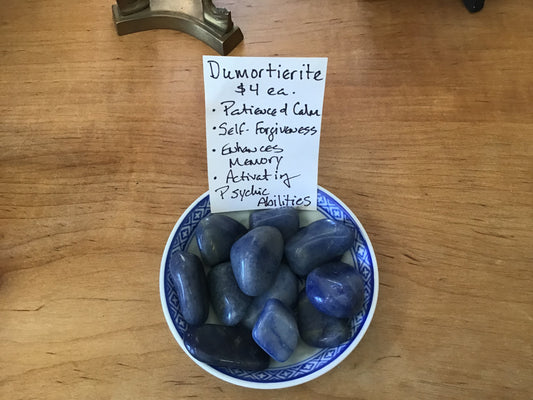 Dumortierite
$4 ea.
• Patience & Calm
• Self-Forgiveness
• Enhances
Memory
• Activating
Psychic
Abilities